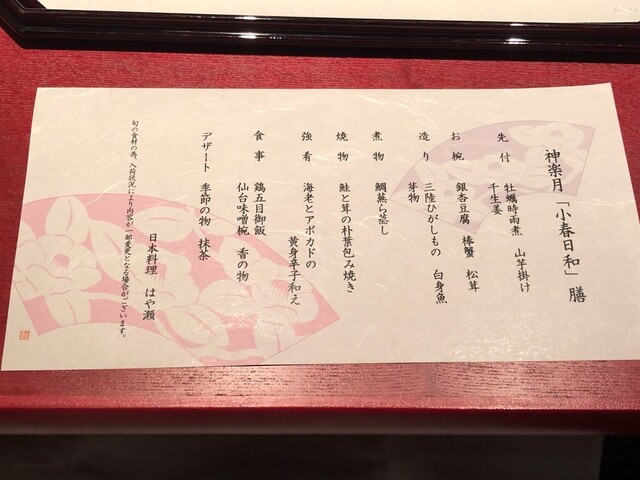 神楽月「小春日和」膳
先付　牡蠣時雨煮　山芋掛け
千生姜
お椀　銀杏豆腐　棒蟹　松茸
造り　三陸ひがしもの　白身魚
芽物
煮物　鯛蕪ら蒸し
焼物　鮭と茸の朴葉包み焼き
強肴　海老とアボカドの
黄身辛子和え
食事　鶏五目御飯
仙台味噌椀　香の物
デザート　季節の物　抹茶
日本料理　はや瀬
旬の食材の為、入荷状況により内容が一部変更となる場合がございます。